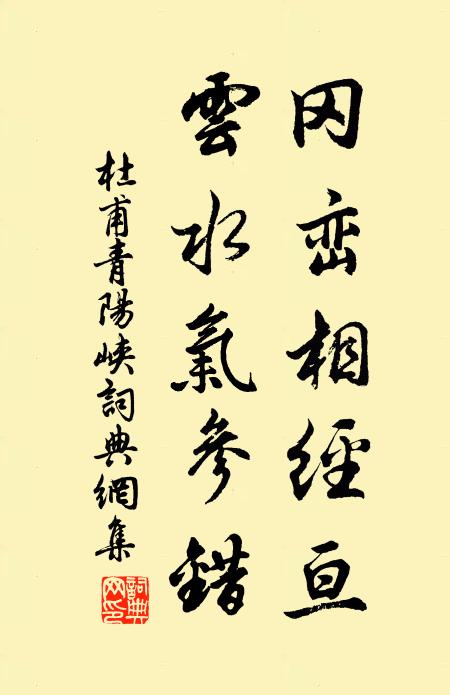 冈峦相經亘
雲水氣參錯
杜甫青陽峽詞典網集
詞典網印